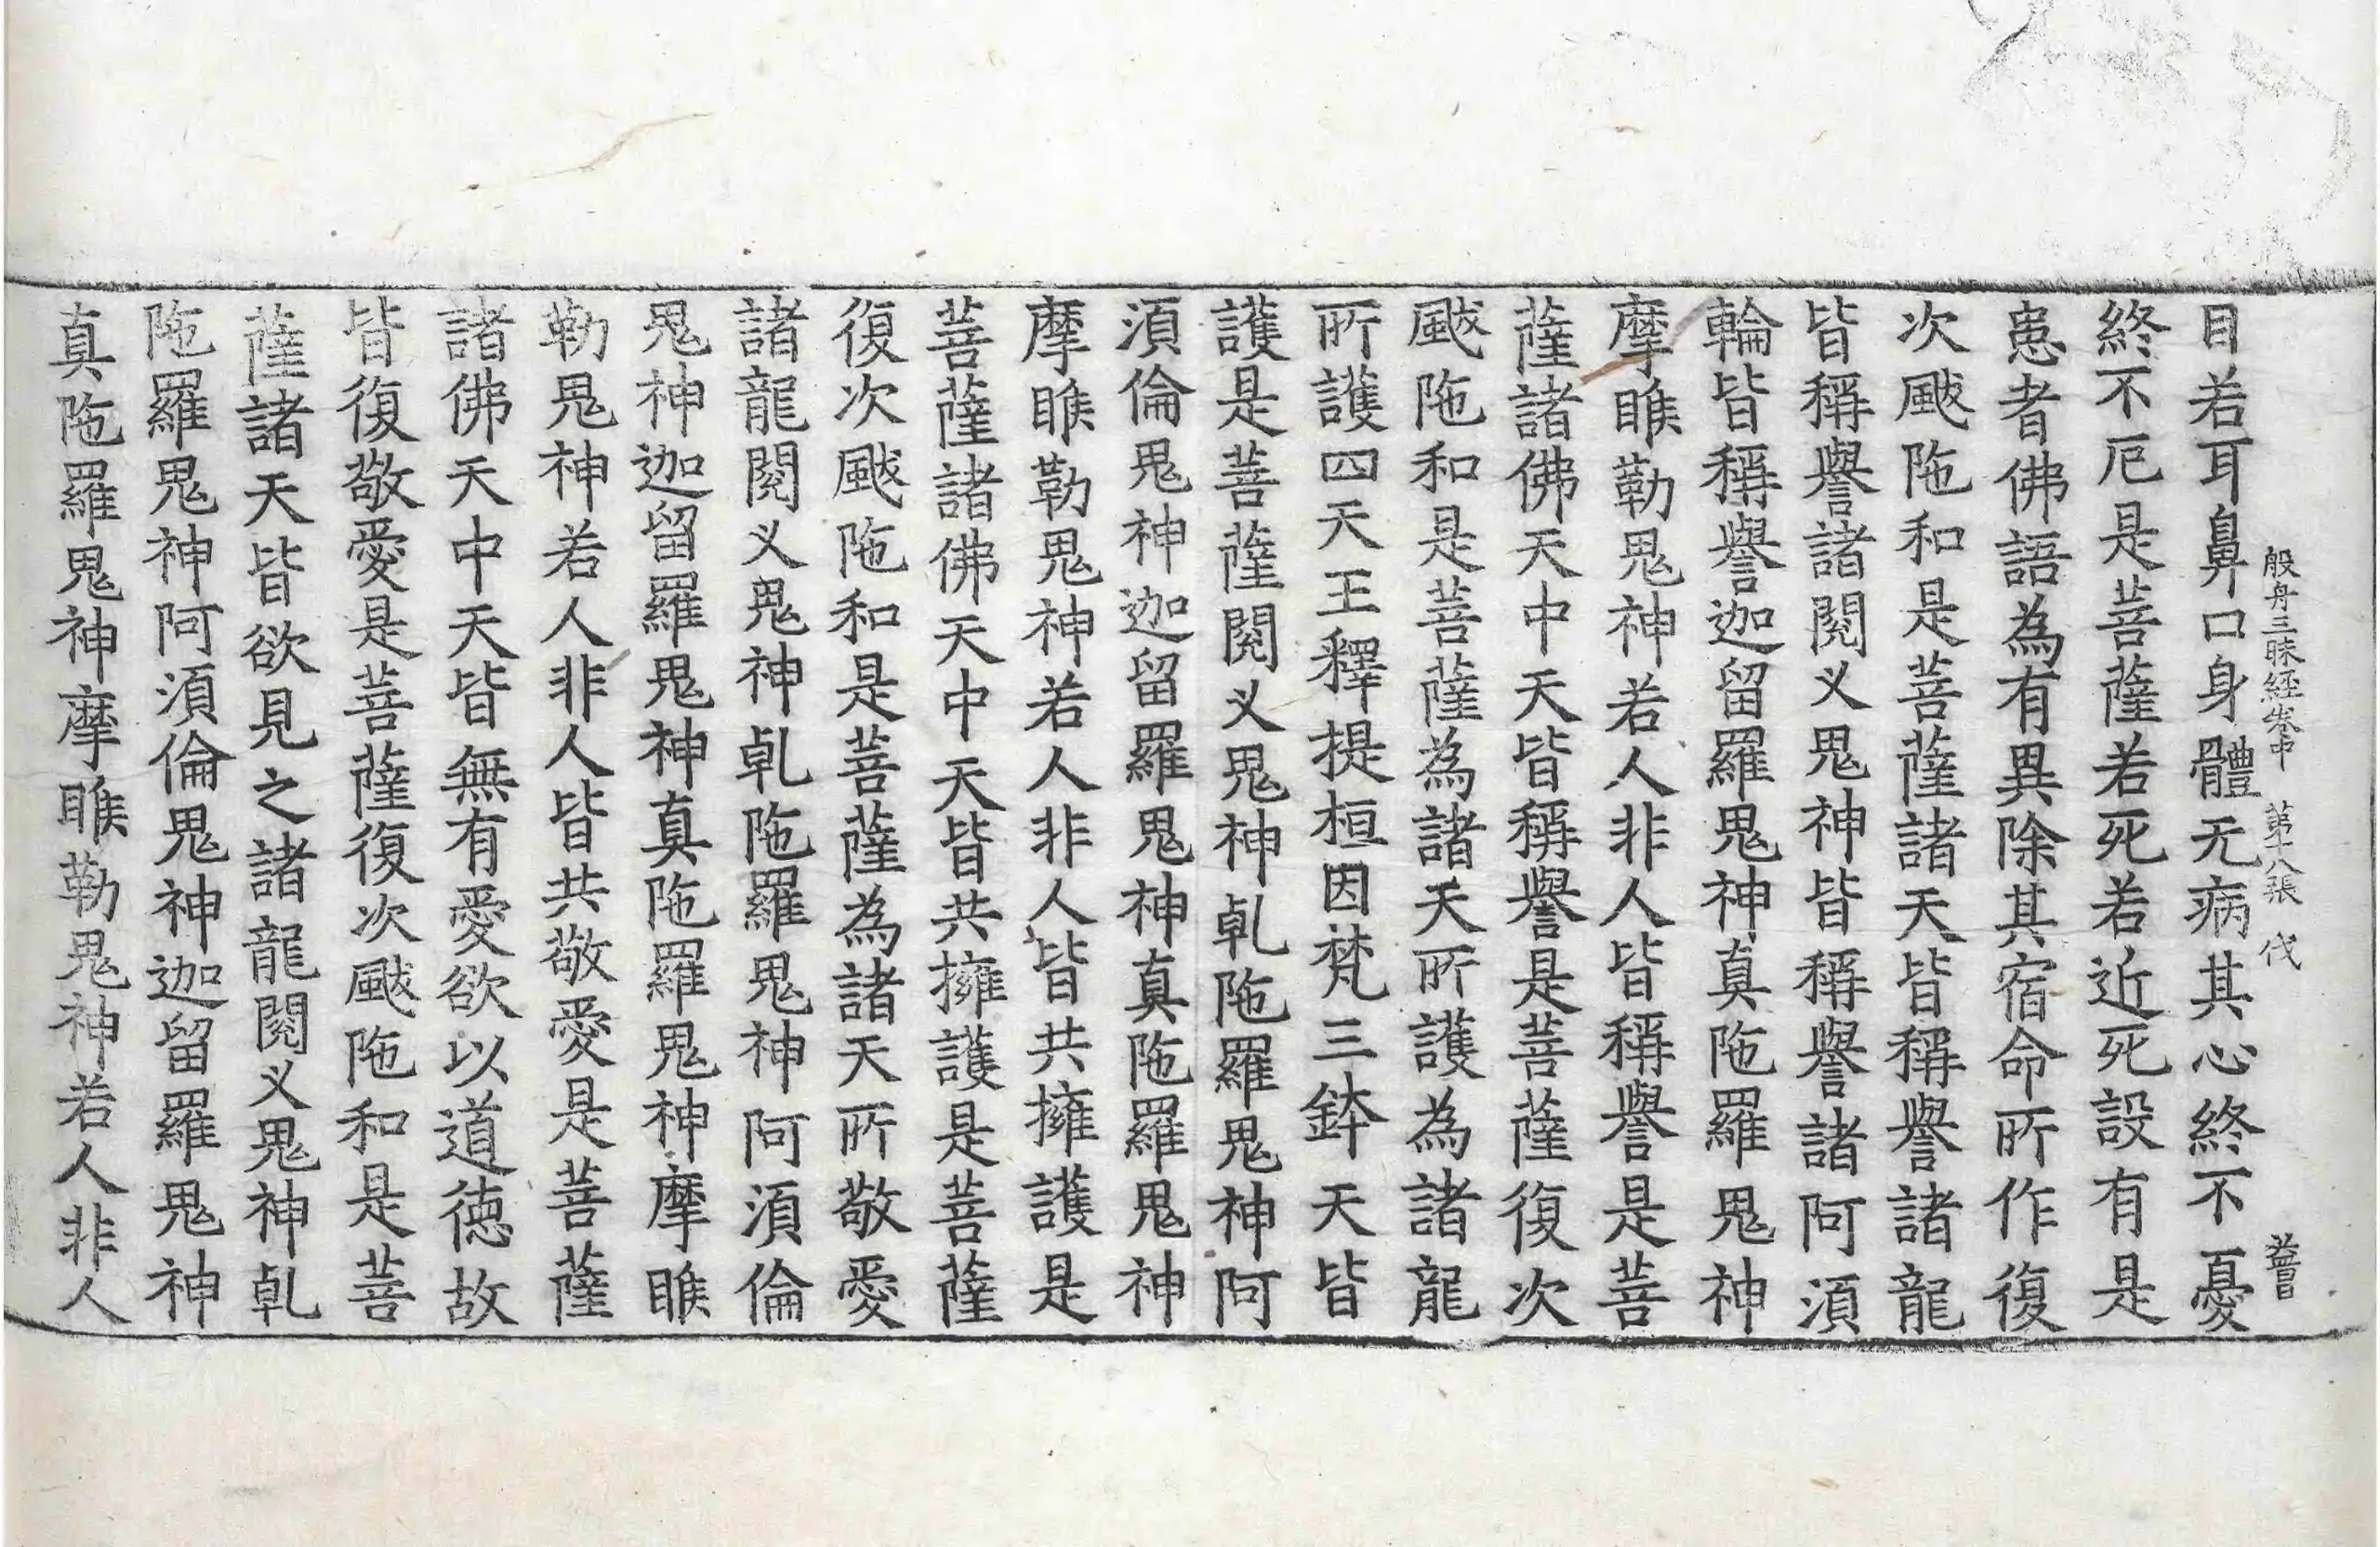 般舟三昧經卷中 第十八張 伐
目若耳鼻口身體无病其心終不憂
終不厄是菩薩若死若近死設有是
患者佛語為有異除其宿命所作復
次颰陁和是菩薩諸天皆稱譽諸龍
皆稱譽諸閱叉鬼神皆稱譽諸阿須
輪皆稱譽迦留羅鬼神真陁羅鬼神
摩睺勒鬼神若人非人皆稱譽是菩
薩諸佛天中天皆稱譽是菩薩復次
颰陁和是菩薩為諸天所護為諸龍
所護四天王釋提桓因梵三鉢天皆
護是菩薩閱叉鬼神乹陁羅鬼神阿
須倫鬼神迦留羅鬼神真陁羅鬼神
摩睺勒鬼神若人非人皆共擁護是
菩薩諸佛天中天皆共擁護是菩薩
復次颰陁和是菩薩為諸天所敬愛
諸龍閱叉鬼神乹陁羅鬼神阿須倫
鬼神迦留羅鬼神真陁羅鬼神摩睺
勒鬼神若人非人皆共敬愛是菩薩
諸佛天中天皆無有愛欲以道德故
皆復敬愛是菩薩復次颰陁和是菩
薩諸天皆欲見之諸龍閱叉鬼神乹
陁羅鬼神阿須倫鬼神迦留羅鬼神
真陁羅鬼神摩睺勒鬼神若人非人